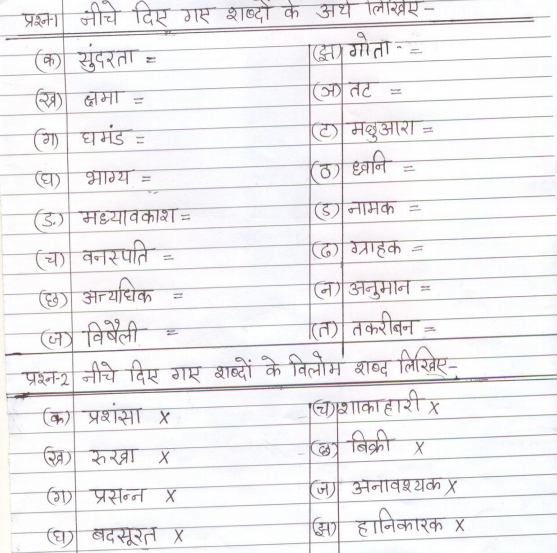 प्रश्न-1 नीचे दिए गए शब्दों के अर्थ लिखिए-
(क) सुंदरता = (झ) गोता - =
(ख) क्षमा = (ञ) तट =
(ग) घमंड = (ट) मछुआरा =
(घ) भाग्य = (ठ) ध्वनि =
(ड.) मध्यावकाश = (ड) नामक =
(च) वनस्पति = (ढ) ग्राहक =
(छ) अत्यधिक = (न) अनुमान =
(ज) विषैली = (त) तकरीबन =
प्रश्न-2 नीचे दिए गए शब्दों के विलोम शब्द लिखिए-
(क) प्रशंसा x (च) शाकाहारी x
(ख) रुखा x (छ) बिक्री x
(ग) प्रसन्न x (ज) अनावश्यक x
(घ) बदसूरत x (झ) हानिकारक x